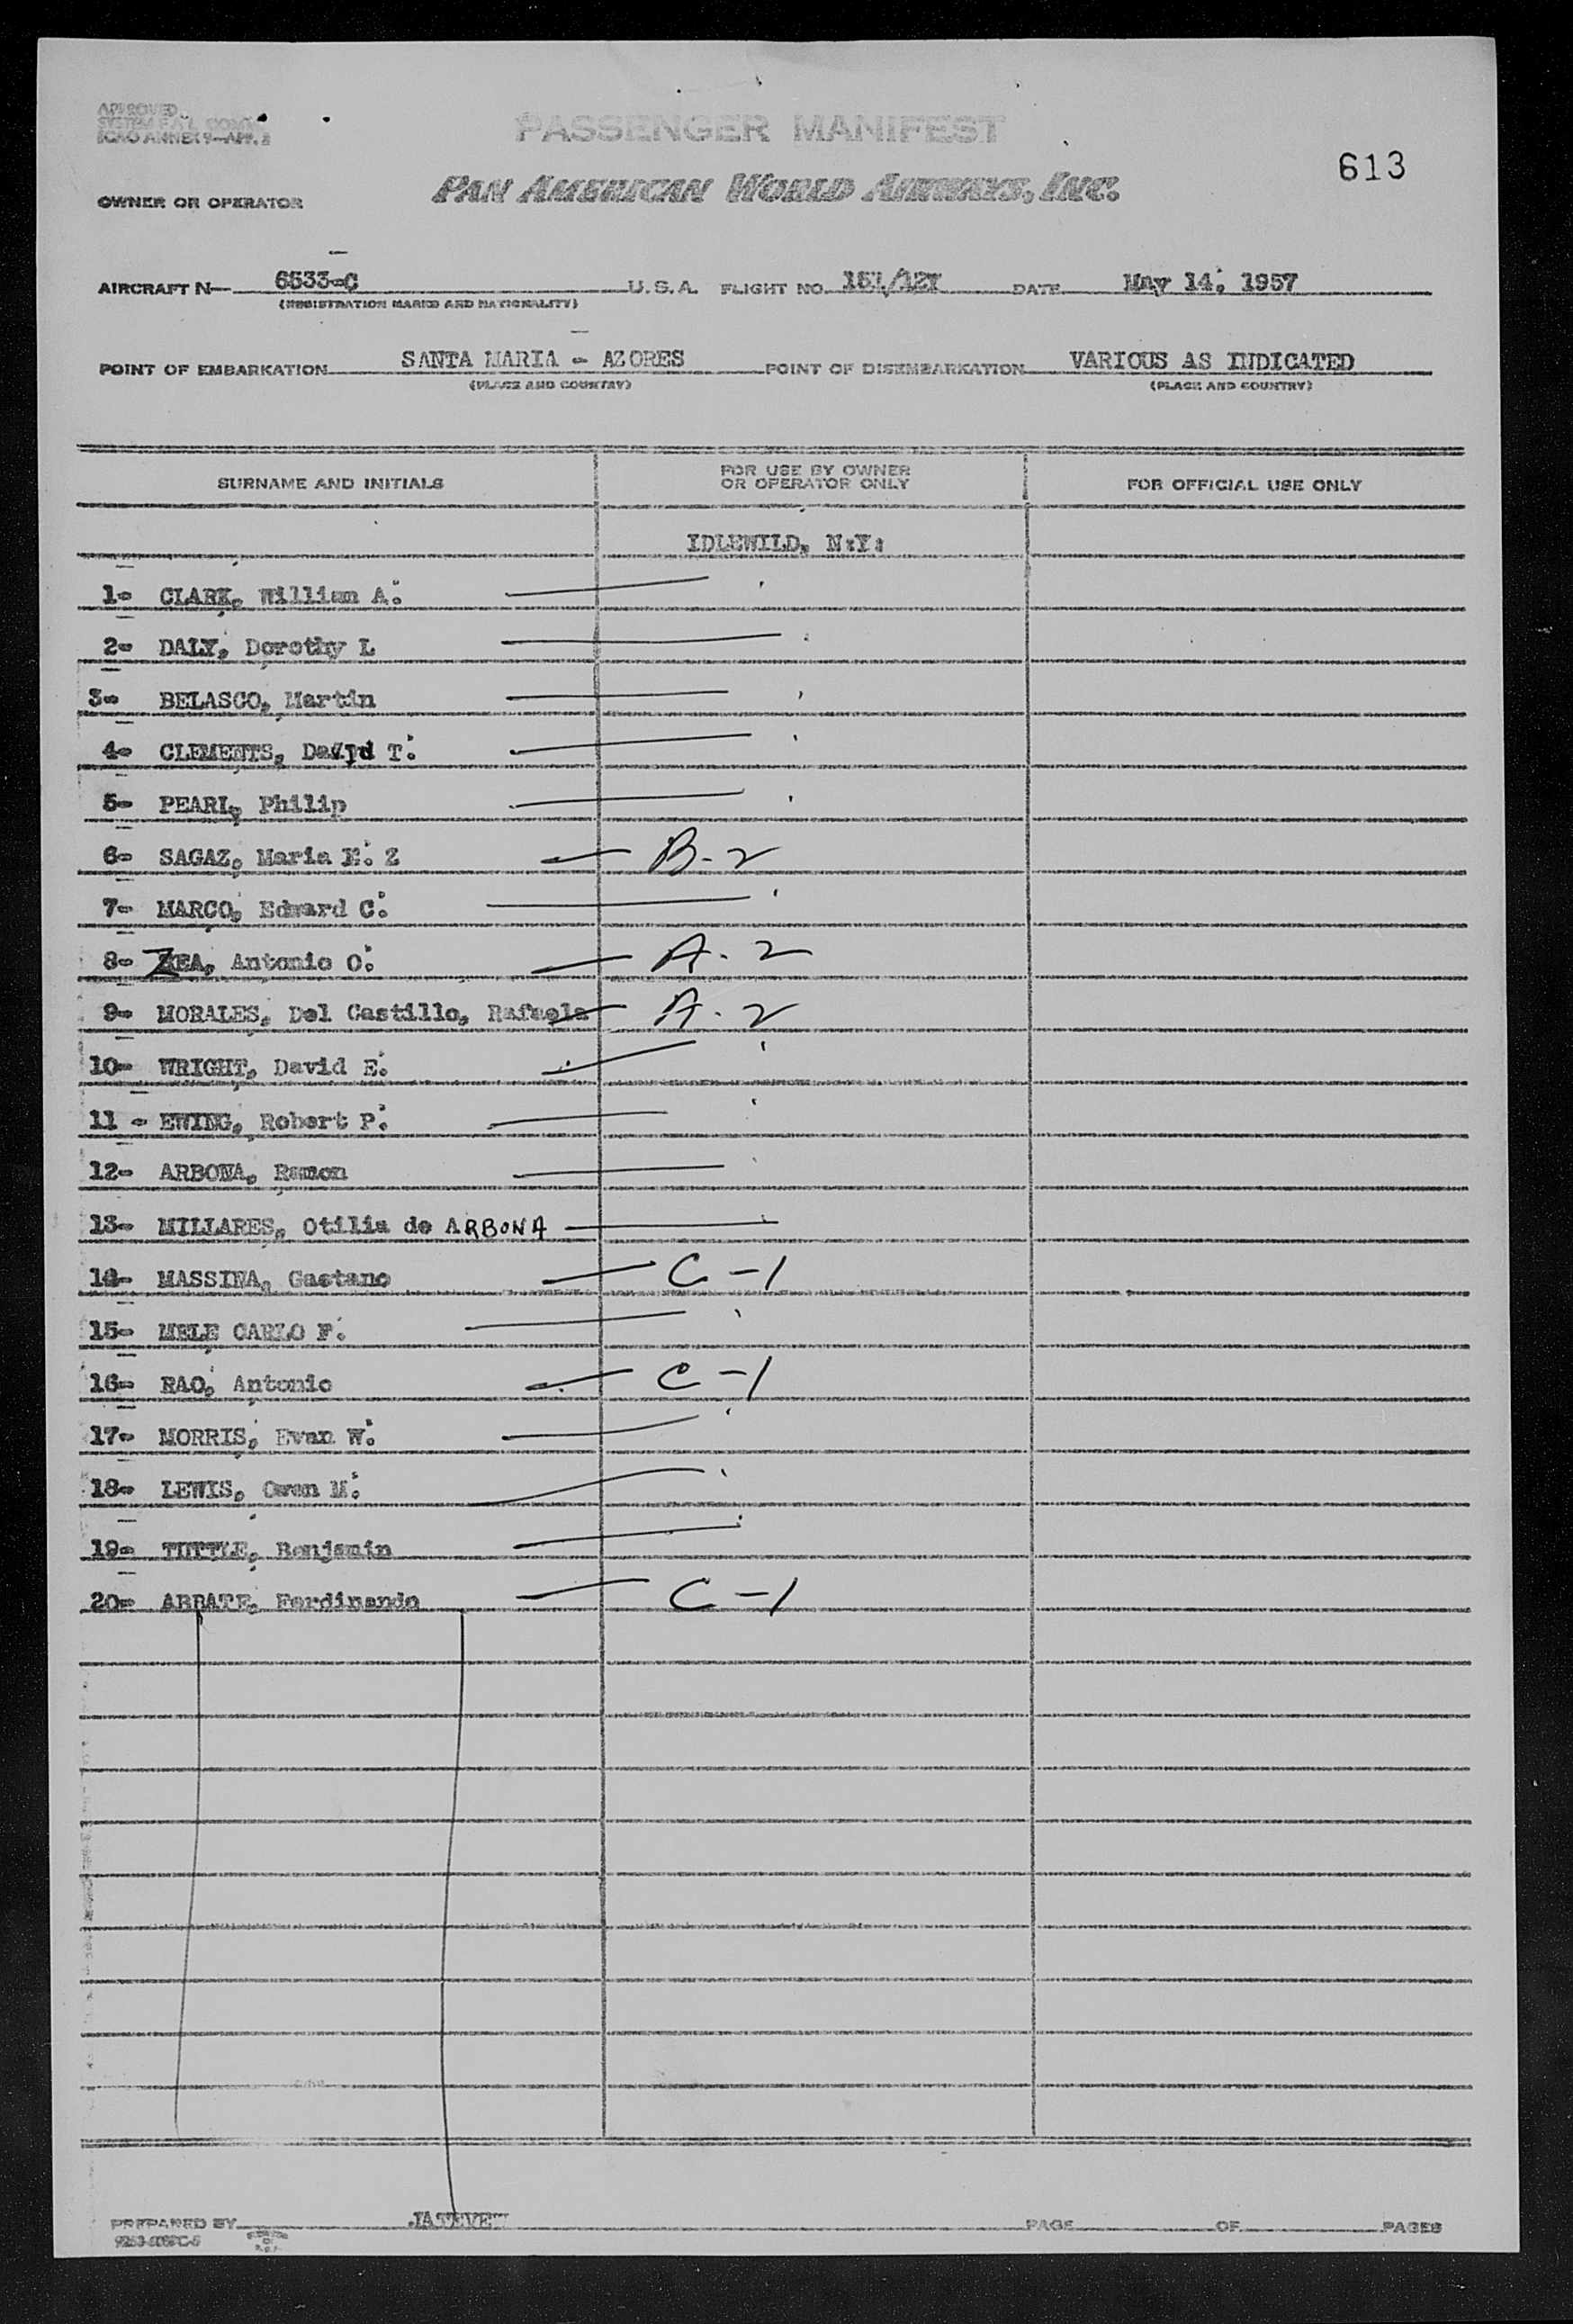 APPROVED
ICAO ANNEX 9—APP. 2
PASSENGER MANIFEST
613
OWNER OR OPERATOR
PAN AMERICAN WORLD AIRWAYS, INC.
AIRCRAFT N— 6533-C U.S.A. FLIGHT NO. DATE May 14, 1957
(REGISTRATION MARKS AND NATIONALITY)
POINT OF EMBARKATION SANTA MARIA - AZORES POINT OF DISEMBARKATION VARIOUS AS INDICATED
(PLACE AND COUNTRY) (PLACE AND COUNTRY)
SURNAME AND INITIALS FOR USE BY OWNER OR OPERATOR ONLY FOR OFFICIAL USE ONLY
IDLEWILD, N.Y.
1- CLARK, William A.
2- DALY, Dorothy L
3- BELASCO, Martin
4- CLEMENTS, David T.
5- PEARL, Philip
6- SAGAZ, Maria E. Z B-2
7- MARCO, Edward C.
8- ZEA, Antonio O. A-2
9- MORALES, Del Castillo, Rafaela A-2
10- WRIGHT, David E.
11 - EWING, Robert P.
12- ARBONA, Ramon
13- MILLARES, Otilia de ARBONA
14- MASSINA, Gaetano C-1
15- MELE CARLO F.
16- RAO, Antonio C-1
17- MORRIS, Evan W.
18- LEWIS, Owen M.
19- TUTTLE, Benjamin
20- ABBATE, Ferdinando C-1
PREPARED BY PAGE OF PAGES